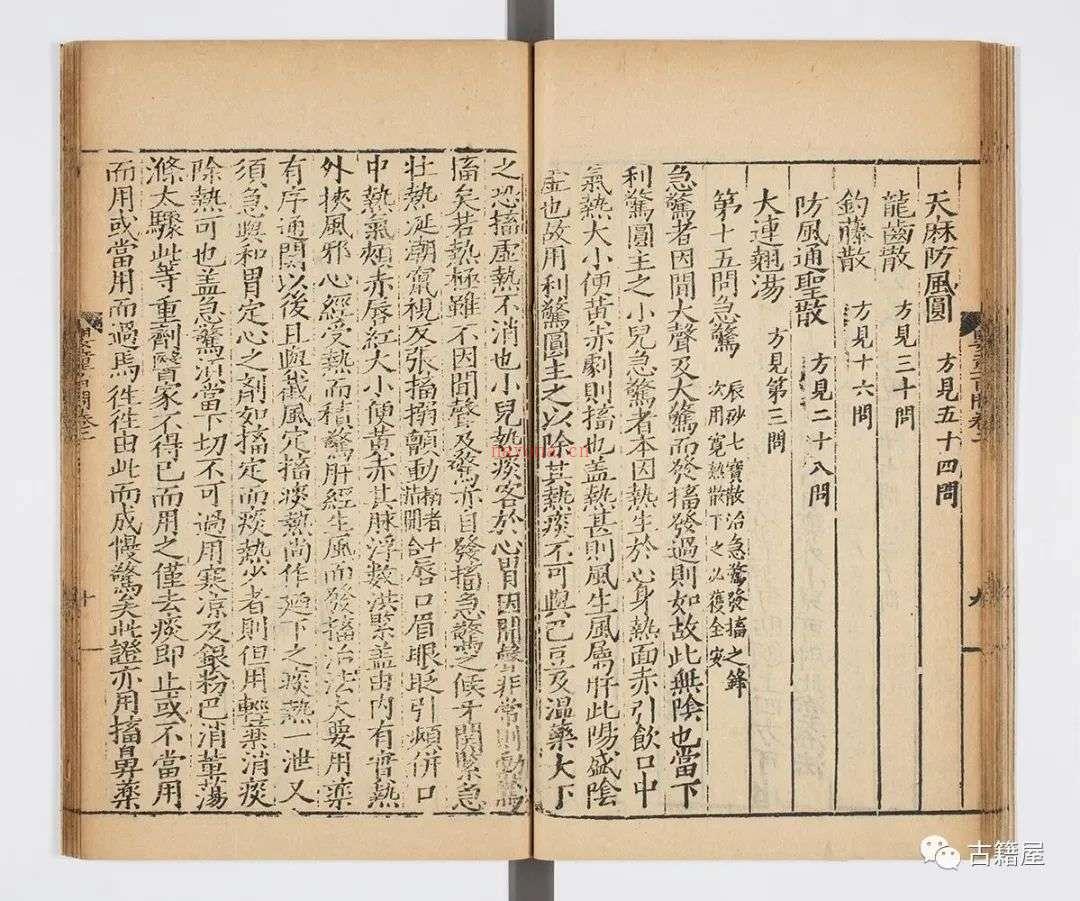 天麻防風圓 方見五十四問
龍齒散 方見三十問
鈎藤散 方見十六問
防風通聖散 方見二十八問
大連翹湯 方見第三問
第十五問急驚 辰砂七寶散治急驚發搐之鋒
次用寬熱散下之必獲全安
急驚者因聞大聲及大驚而發搐發過則如故此無陰也當下
利驚圓主之小兒急驚者本因熱生於心身熱面赤引飲口中
氣熱大小便黃赤劇則搐也盖熱甚則風生風屬肝此陽盛陰
虛也故用利驚圓主之以除其熱痰不可與巴豆及温藥大下
之恐搐虛熱不消也小兒熱痰客於心胃因聞聲非常則動驚
搐矣若熱極雖不因聞聲及驚亦自發搐急驚之候牙關緊急
壯熱涎潮竄視反張搐搦顫動 口眉眼眨引頰併口
中熱氣頰赤唇紅大小便黃赤其脉浮數洪緊盖由內有實熱
外挾風邪心經受熱而積驚肝經生風而發搐治法大要用藥
有序通關以後且與截風定搐痰熱尚作廼下之痰熱一泄又
須急與和胃定心之劑如搐定而痰熱少者則但用輕藥消痰
除熱可也盖急驚湏當下切不可過用寒凉及銀粉巴消蕩
滌太驟此等重劑醫家不得已而用之僅去痰即止或不當用
而用或當用而過焉徃徃由此而成慢驚矣此證亦用搐鼻藥
九
十
古籍屋